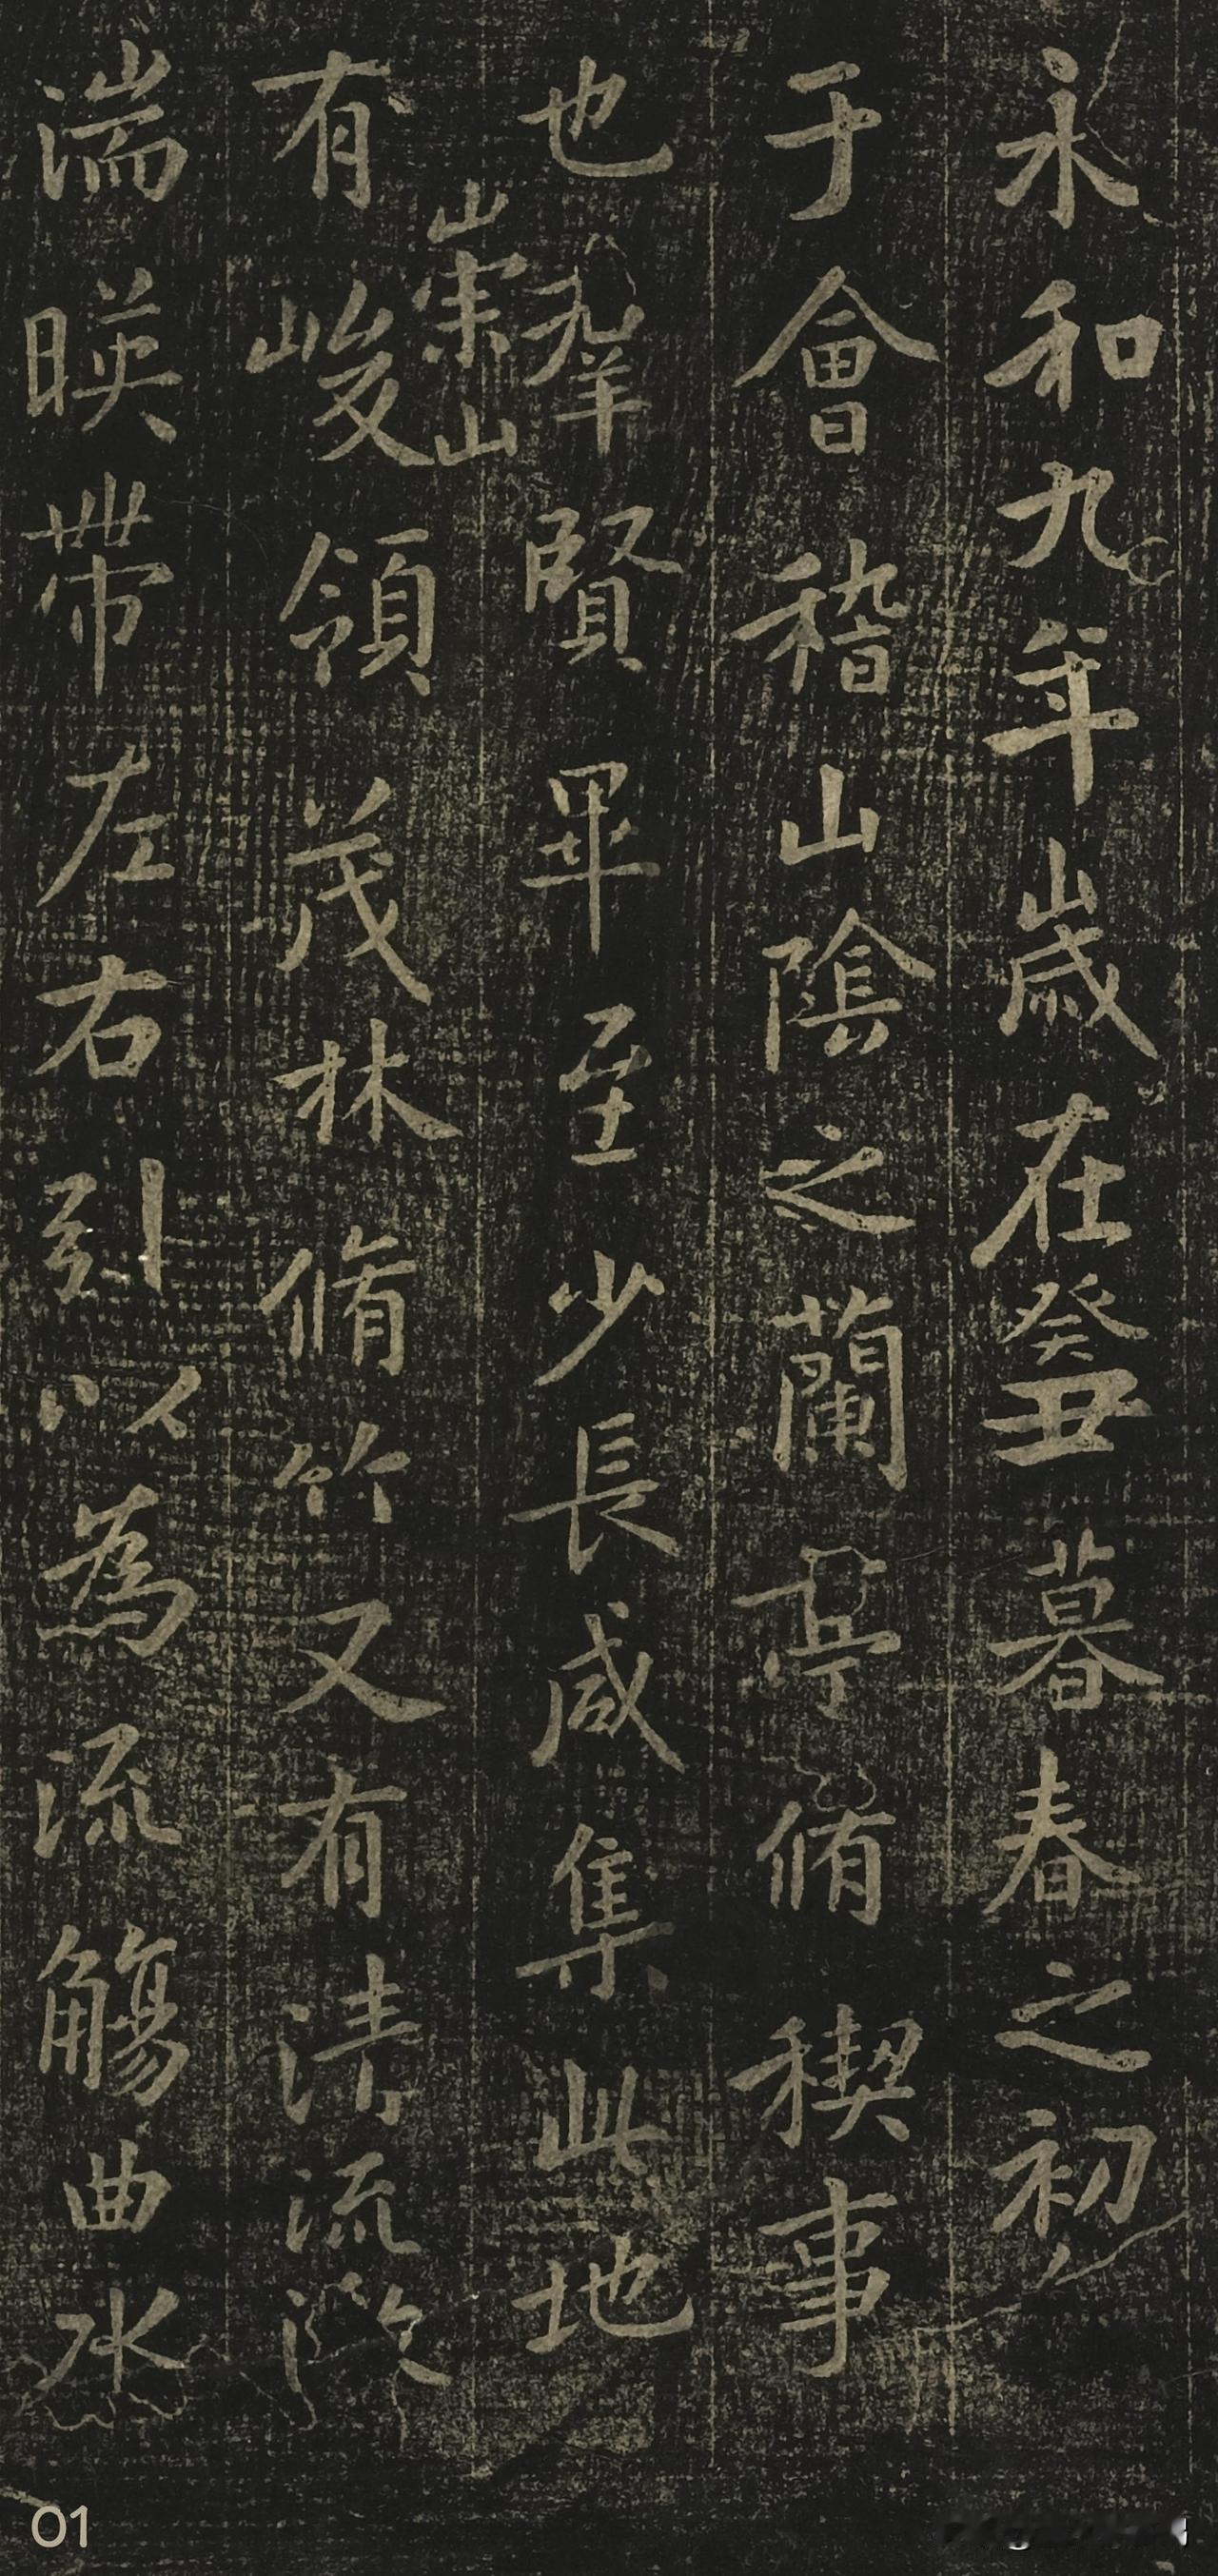 永和九年歲在癸丑暮春之初
于會稽山陰之蘭亭脩稧事
也羣賢畢至少長咸集此地
崇山
有峻領茂林脩竹又有清流激
湍暎帶左右引以為流觴曲水
01